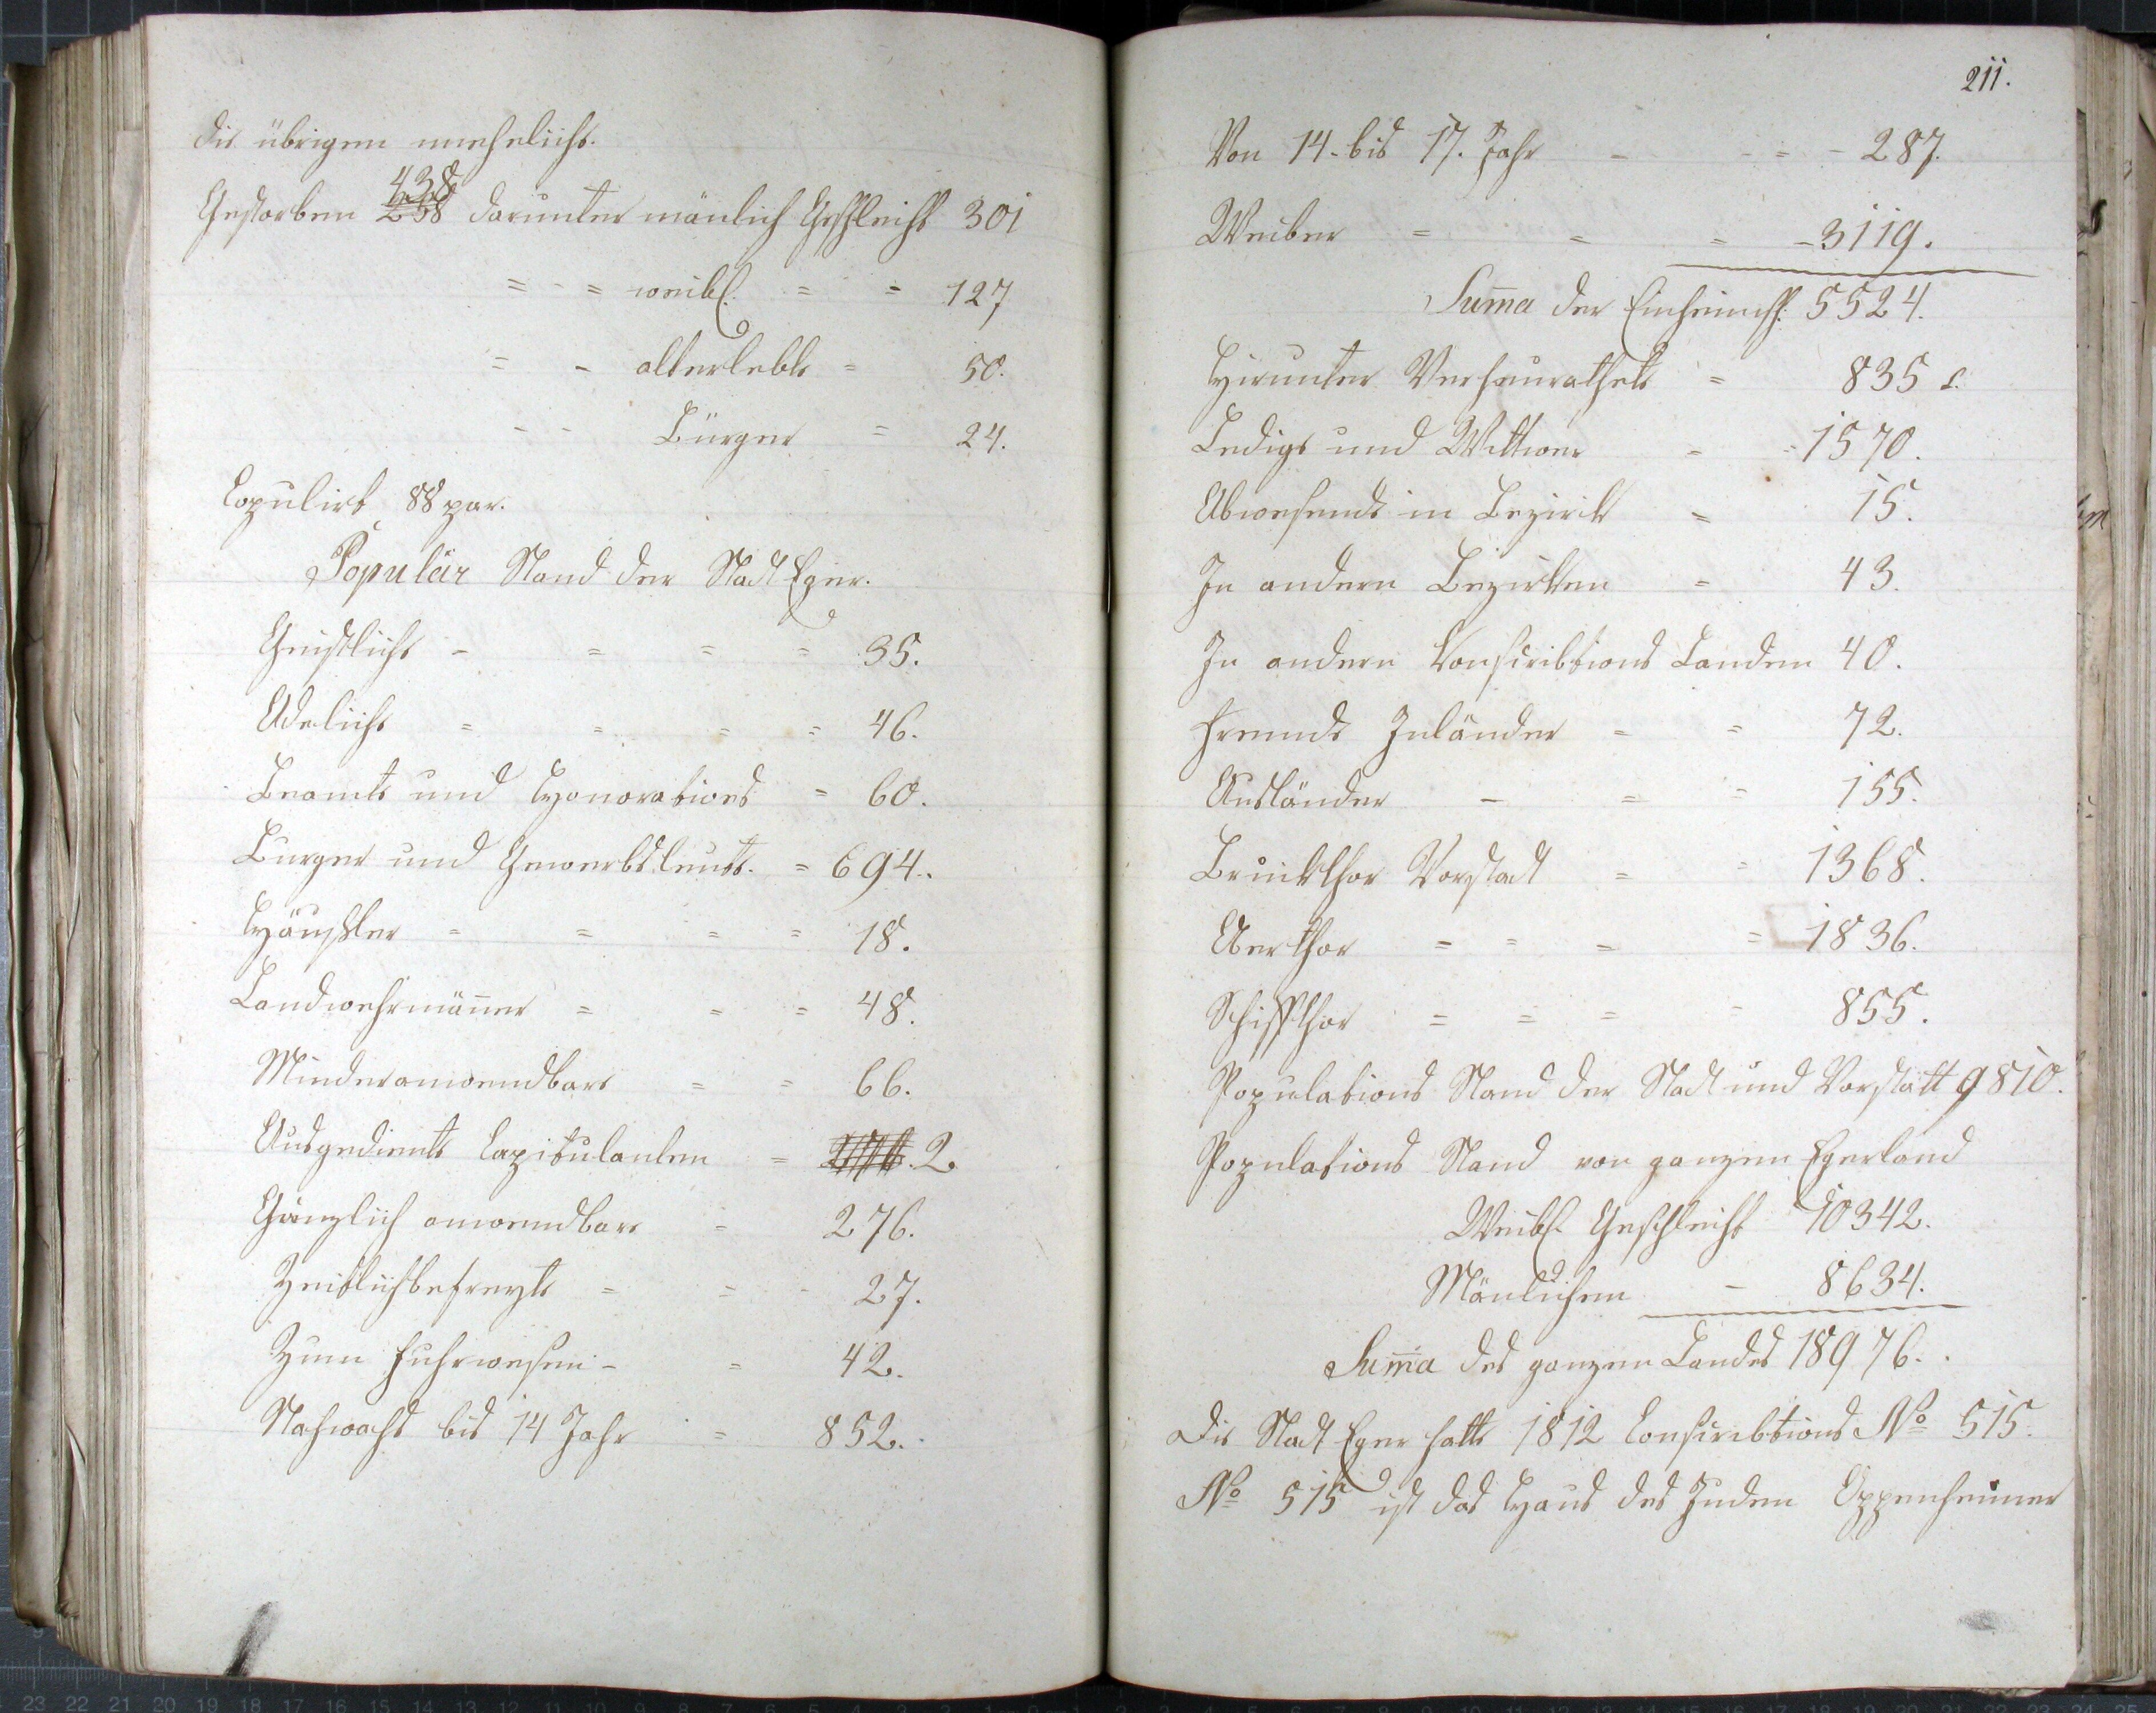 die übrigen uneheliche.
438
Gestorben 258 darunter mänlich Geschlecht 301
= - = weibl. = = 127
= - alterlebte = 50.
- - Bürger = 24.
Copulirt 88 par.
Populär Stand der Stadt Eger.
Geistliche - = = = 35.
Adeliche = = = = 46.
Beamte und Honoratiores = 60.
Burger und Gewerbsleute. = 694.
Häußler = = = = 18.
Landwehrmäner = = = 48.
Minderanwendbare = = 66.
Ausgediente Capitulanten = 2.
Gänzlich anwendbare = 276.
Zeitlichbefreyte = = - 27.
Zum Fuhrwesen - = 42.
Nachwachs bis 14 Jahr = 852.
211.
Von 14. bis 17. Jahr - - = - 287.
Weiber = = = - 3119.
Suma der Einheimisch: 5524.
Hirunter Verheurathete = 835
Ledige und Wittwer - = 1570.
Abwesende in Bezirk = 15.
In andern Bezirken = 43.
In andern Conscribtions Landen 40.
Fremde Inländer = = 72.
Ausländer - = = 155.
Bruckthor Vorstadt = = 1368.
Oberthor = = = = 1836.
Schiffthor = = = - 855.
Populations Stand der Stadt und Vorstätt 9810.
Populations Stand von ganzen Egerland
Weibl. Geschlecht 10342.
Mänlichen - 8634.
Suma des ganzen Landes 18976.
Die Stadt Eger hatte 1812 Conscribtions No 515.
No 515 ist das Haus des Juden Oppenheimer